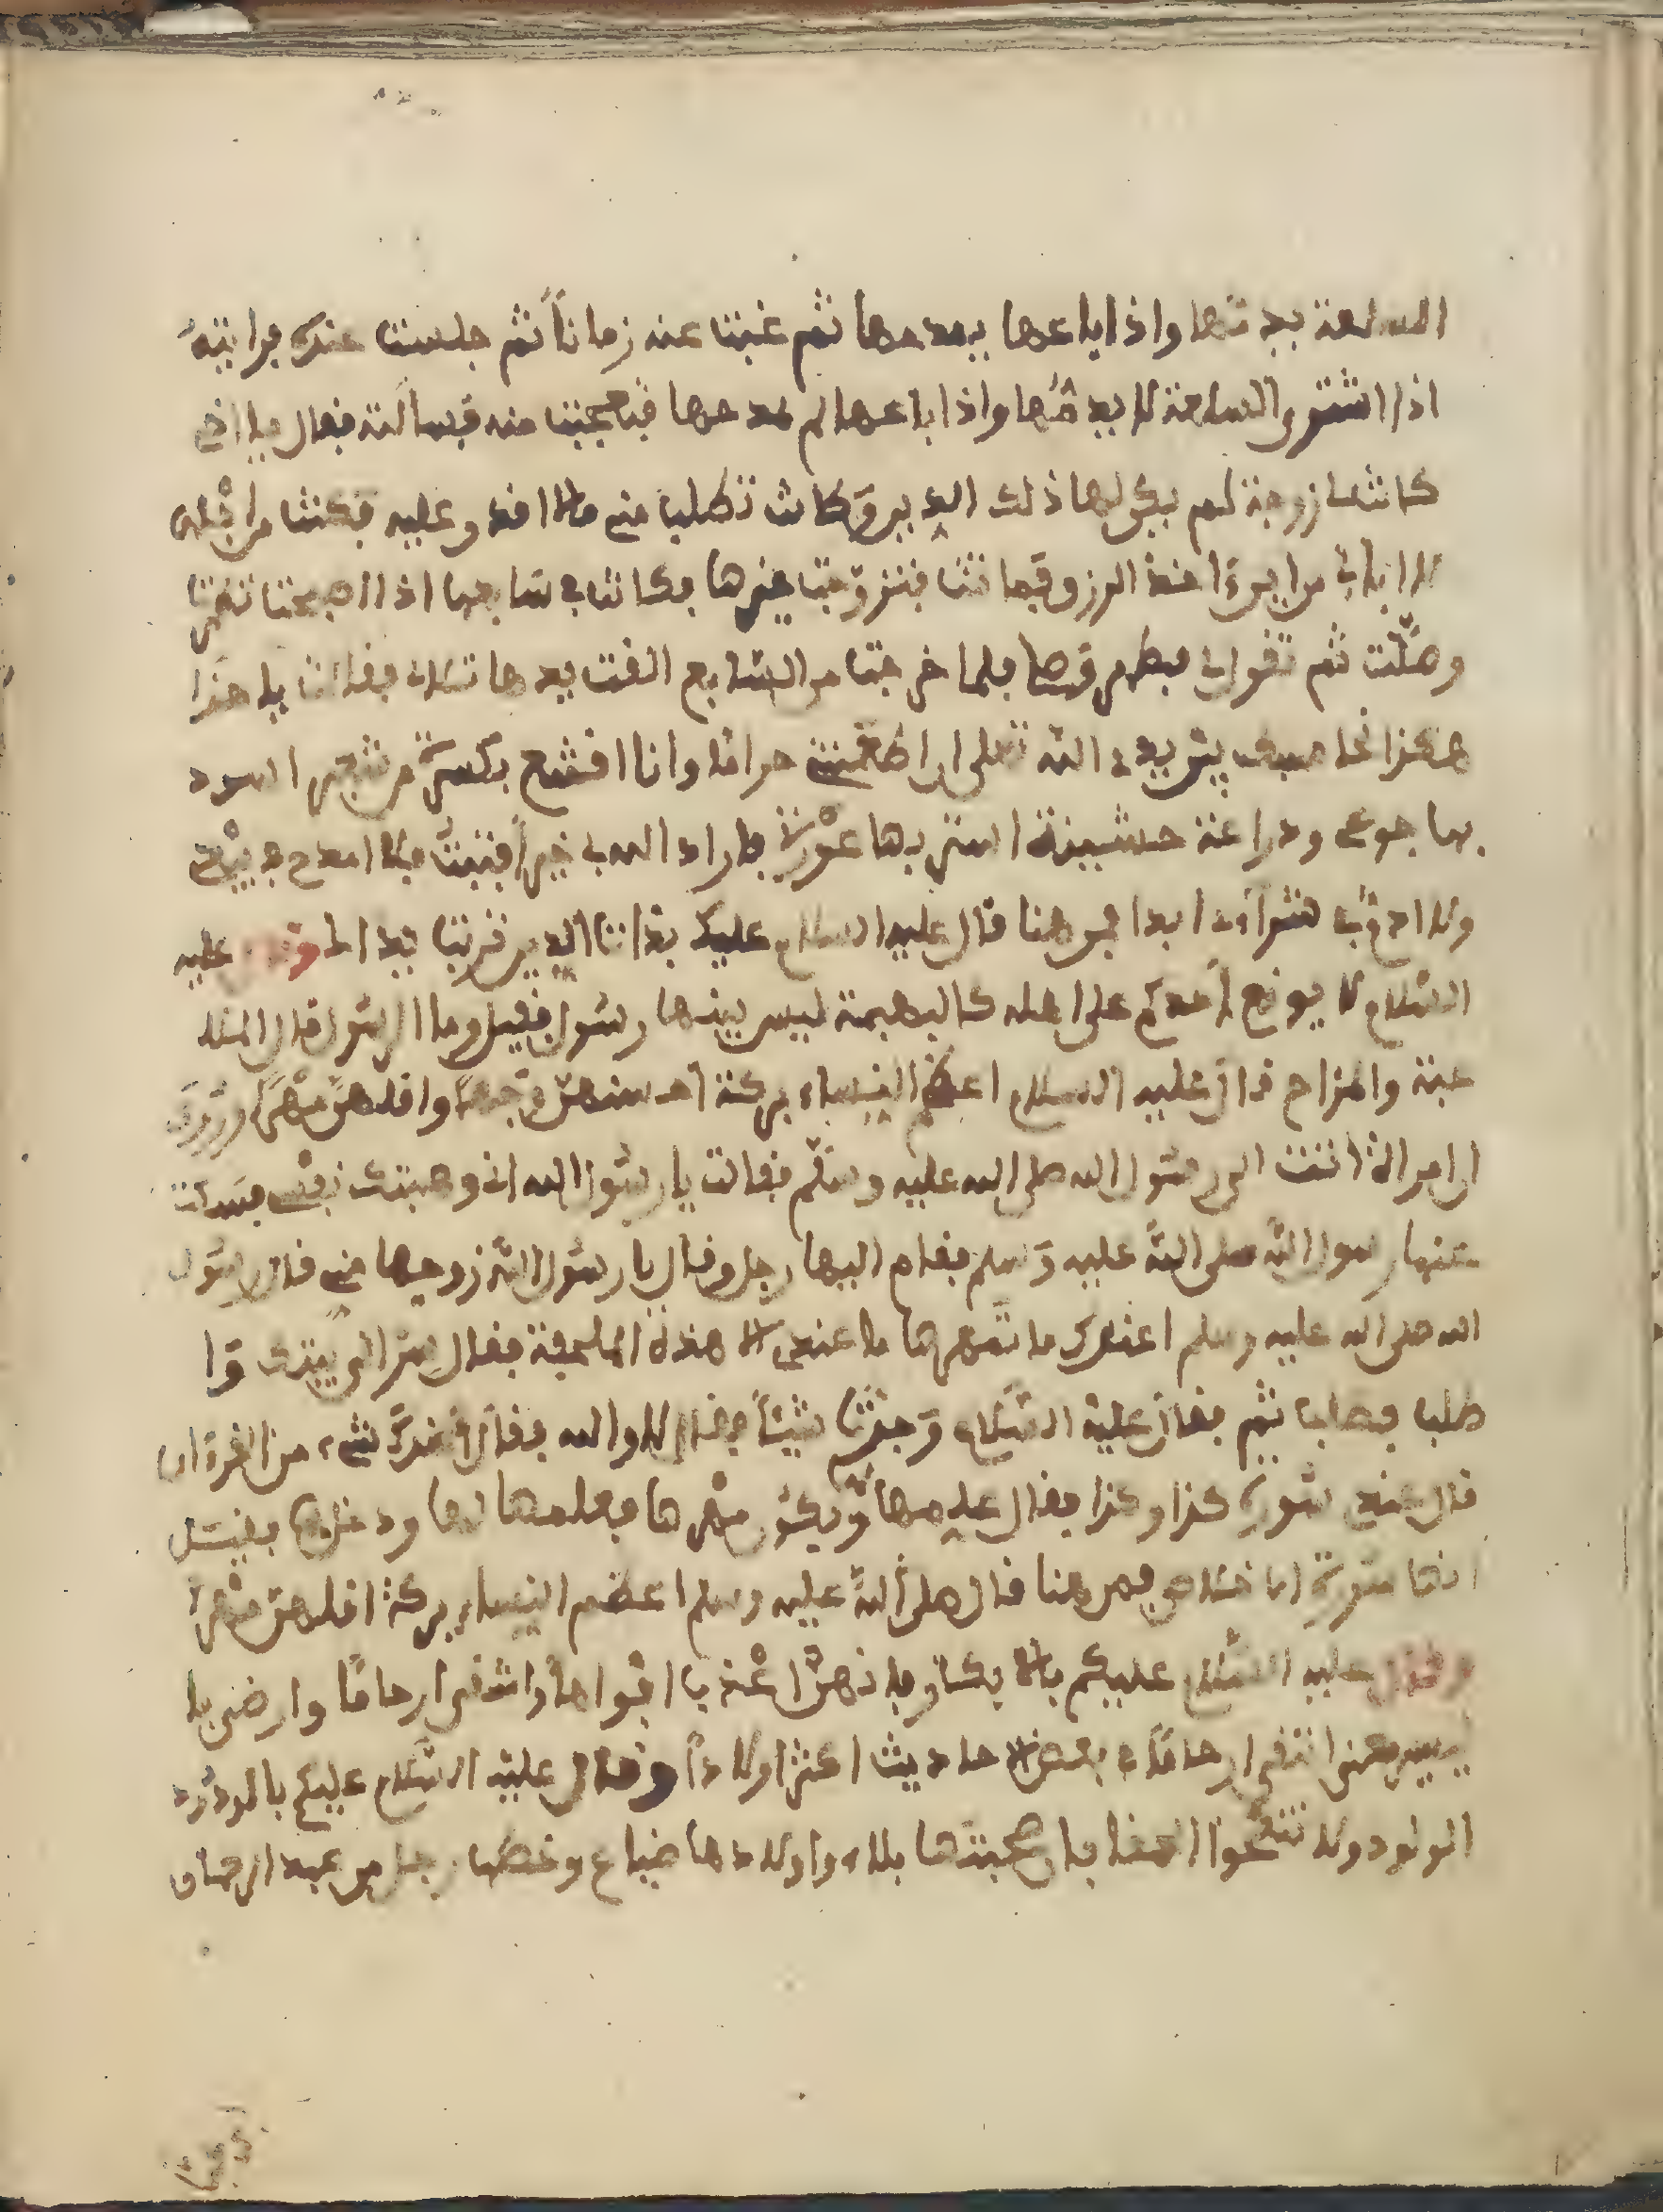 السلعة يذمها واذا باعها يمدحها ثم غبت عنه زمانا ثم جلست عنده فرايته
اذا اشترى السلعة لا يذمها واذا باعها لم يمدحها فتعجبت منه فسالته فقال يا اخي
كانت زوجة لم يكن لها ذلك الدين وكانت تطلب مني ما لا اقدر عليه فكنت من اجلها
لا ابالي من اين اخذ الرزق فماتت فتزوجت غيرها فكانت في سابعها اذا اصبحت
وصلت ثم تقول فلما خرجت من السابع التفت بعدها فقالت يا هذا
هكذا يدي الله تعلى ان اطعمتني حراما وانا اقنع بكسرة من شعير اسود
بها جوعي ودراعة خشينة استر بها عورتي فاراد الله بي خيرا فتبت فلا امدح في بيعي
ولا اذم في شراءي ابدا فمن هنا قال عليه السلام عليك بذات الدين تربت يداك وقال عليه
السلام لا يوقع احدكم على اهله كالبهيمة ليس بينها رسول فقيل وما الرسول قال الملا
عبة والمزاح قال عليه السلام اعظم النساء بركة احسنهن وجها واقلهن مهرا وروي
ان امراة اتت الى رسول الله صلى الله عليه وسلم فقالت يا رسول الله اني وهبتك نفسي فسكت
عنها رسول الله صلى الله عليه وسلم فقام اليها رجل وقال يا رسول الله زوجها مني قال رسول
الله صلى الله عليه وسلم اعندك ما تمهرها ما عندي الا هذه الملحفة فقال سر الى بيتك وا
طلب فطلب ثم فقال عليه السلام وجدت شيئا فقال لا والله فقال اعندك شيء من القرءان
قال عندي سورة كذا وكذا فقال علمها ويكون مهرها فعلمها لها ودخل بها فقيل
انها سورة الاخلاص فمن هنا قال صلى الله عليه وسلم اعظم النساء بركة اقلهن مهرا
وقال عليه السلام عليكم بالابكار فانهن اعذب افواها وانتقى ارحاما وارضى با
ليسير يعني انتقى ارحاما في بعض الاحاديث اكثر اولادا وقال عليه السلام عليكم بالودود
الولود ولا تنكحوا الحمقا فان صحبتها بلاء واولادها ضياع وخطب رجل من عبد الرحمان